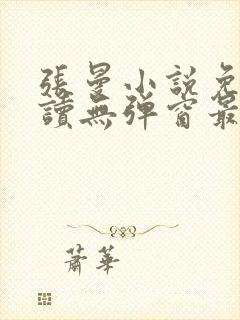 張曼小說免
讀無彈窗最
蕭華